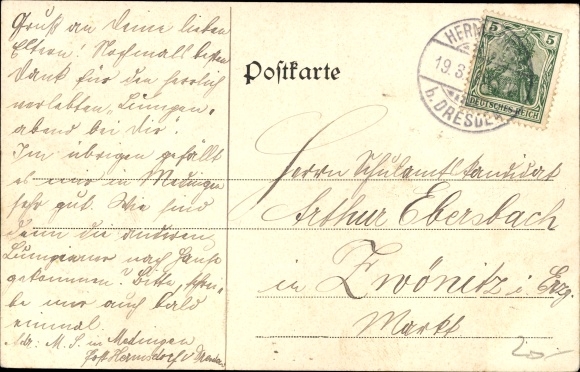 Gruß an Deine lieben
Eltern! Nochmall besten
Dank für den herrlich
verlebten „Lumpen"
abend bei Dir!
Im übrigen gefällt
es mir in Medingen
sehr gut. Wie sind
denn die anderen
nach Hause
gekommen? Bitte, schrei-
be mir auch bald
einmal.
Adr: M. S. in Medingen
Post Hermsdorf b Dresden
Postkarte
HERM
19.3
b. DRESDEN
5 5
DEUTSCHES REICH
Herrn Schulamtskandidat
Arthur Ebersbach
in Zwönitz i. Erzg.
Markt
20.-